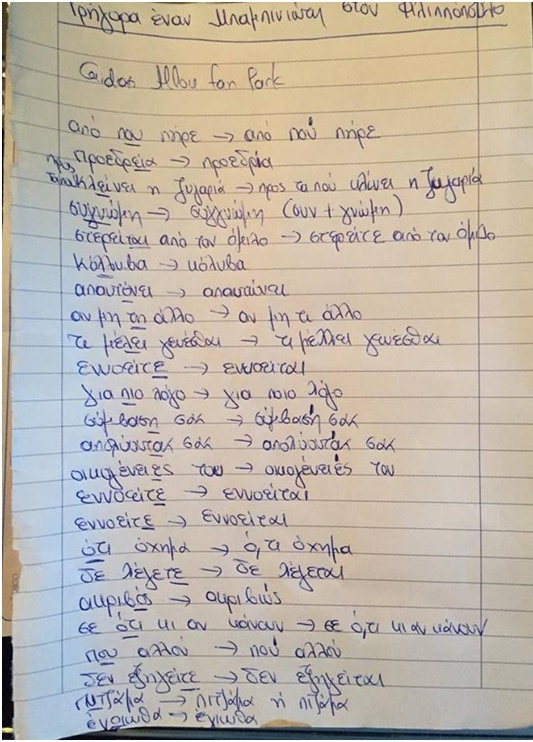 Γρήγορα έναν Μπαμπινιώτη στον Φιλιππόπουλο
Park
από που πήρε → από πού πήρε
Προεδρεία → προεδρία
προς τα που κλείνει η ζυγαρία → προς τα πού κλίνει η ζυγαρία
συγνώμη → συγγνώμη (συν + γνώμη)
στερείται από τον όμιλο → στερείτε από τον όμιλο
κόλυβα → κόλυβα
απαυτόνει → απαυταίνει
αν μη τη άλλο → αν μη τι άλλο
τι μέλει γενέσθαι → τι μέλλει γενέσθαι
εννοείτε → εννοείται
για πιο λόγο → για ποιο λόγο
σύμβαση σας → σύμβασή σας
απολύοντας σας → απολύοντάς σας
οικογένειες του → οικογένειές του
εννοείτε → εννοείται
εννοείτε → εννοείται
ότι όχημα → ό,τι όχημα
δε λέγετε → δε λέγεται
ακριβός → ακριβώς
σε ότι κι αν κάνουν → σε ό,τι κι αν κάνουν
που αλλού → πού αλλού
δεν εξηγείτε → δεν εξηγείται
πιτζάμα ή πιζάμα
ένοιωθα → ένιωθα